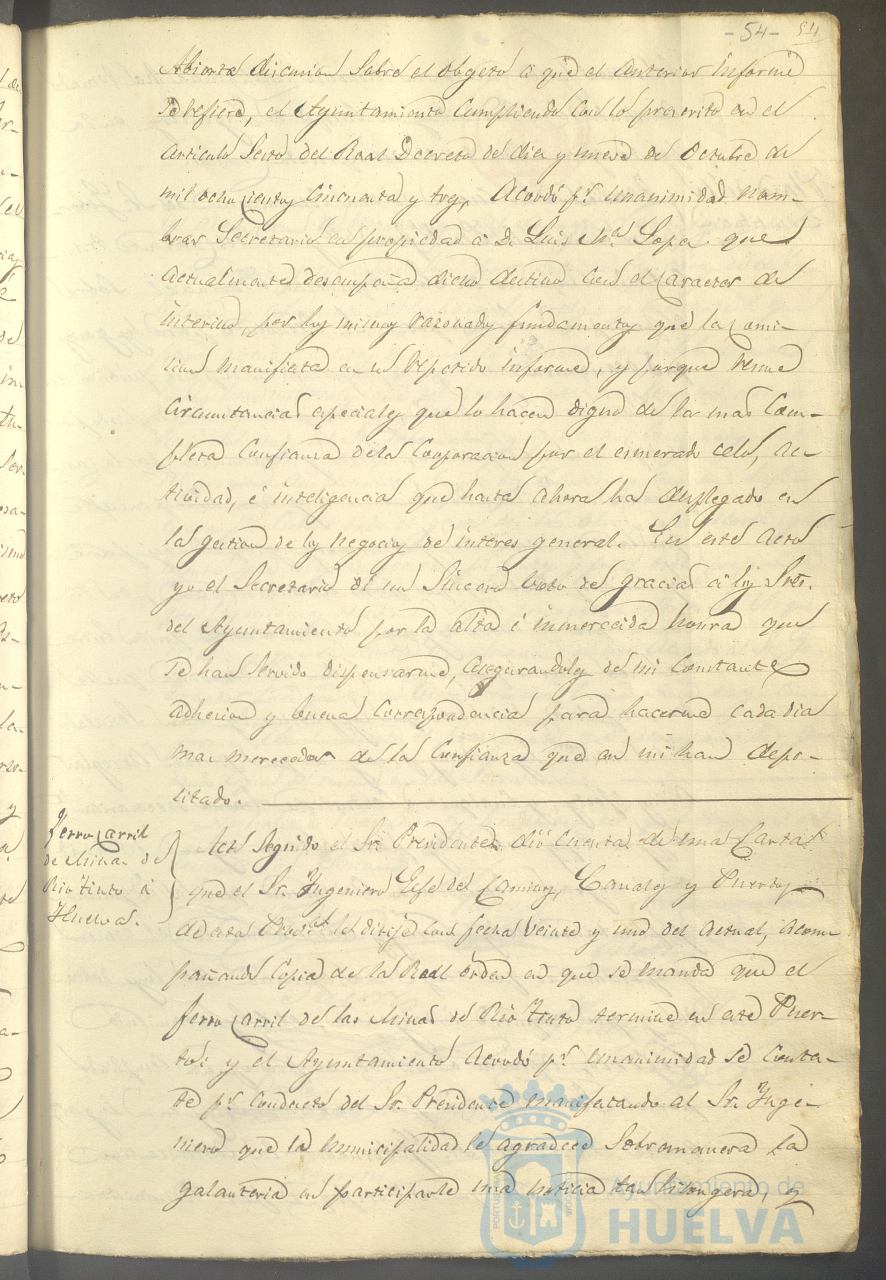 -54- 54
Abierta discusion sobre el obgeto a que el anterior informe
se refiere, el Ayuntamiento cumpliendo con lo prescrito en el
articulo sesto del Real Decreto de diez y nueve de Octubre de
mil ochocientos cincuenta y tres, Acordó pr. unanimidad nom-
brar Secretario en propiedad a D. Luis Ma. Lopez que
actualmente desempeña dicho destino con el caracter de
interino, por los mismos razonados fundamentos que la comi-
sion manifiesta en su repetido informe, y porque reune
circunstancias especiales que lo hacen digno de la mas com-
pleta confianza de la Corporacion por el esmerado celo, ac-
tividad, é inteligencia que hasta ahora ha desplegado en
la gestion de los negocios de interes general. En este acto
yo el Secretario di un sincero voto de gracias a los Sres.
del Ayuntamiento por la alta é inmerecida honra que
se han servido dispensarme, asegurandoles de mi constante
adhesion y buena correspondencia para hacerme cada dia
mas merecedor de la confianza que en mi han depo-
sitado.
Ferro carril
de Minas de
Rio Tinto á
Huelva.
Acto seguido el Sr. Presidente dió cuenta de una Carta
que el Sr. Ingeniero Gefe de Caminos, Canales y Puertos
de esta Provia. le dirije con fecha veinte y uno del actual, acom-
pañando copia de la Real órden en que se manda que el
ferro carril de las Minas de Rio Tinto termine en este Puer-
to; y el Ayuntamiento Acordó pr. unanimidad se contes-
te pr. conducto del Sr. Presidente manifestando al Sr. Inge-
niero que la municipalidad le agradece sobremanera la
galanteria en participarle una noticia tan lisongera, y
Ayuntamiento de
HUELVA